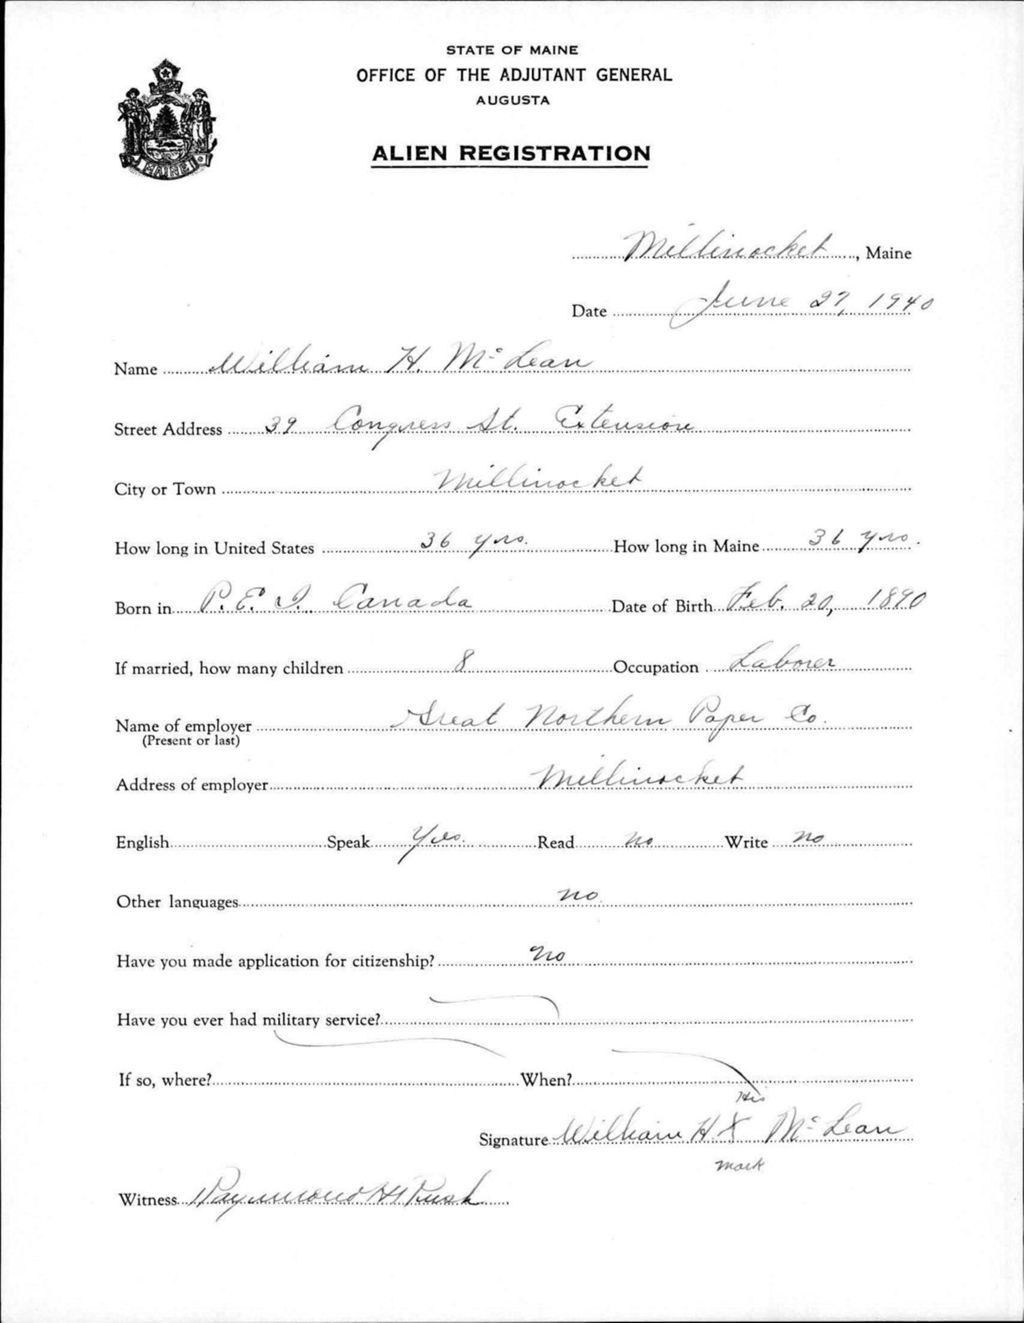 STATE OF MAINE
OFFICE OF THE ADJUTANT GENERAL
AUGUSTA
ALIEN REGISTRATION
MAINE
Millinocket, Maine
Date June 27, 1940
Name William H. McLean
Street Address 39 Congress St. Extension
City or Town Millinocket
How long in United States 36 yrs. How long in Maine 36 yrs.
Born in P.E.I. Canada Date of Birth Feb. 20, 1890
If married, how many children 8 Occupation Laborer
Name of employer Great Northern Paper Co.
(Present or last)
Address of employer Millinocket
English Speak Yes. Read no Write no
Other languages no
Have you made application for citizenship? No
Have you ever had military service?
If so, where? When?
His
Signature William H X McLean
mark
Witness Raymond H Rush